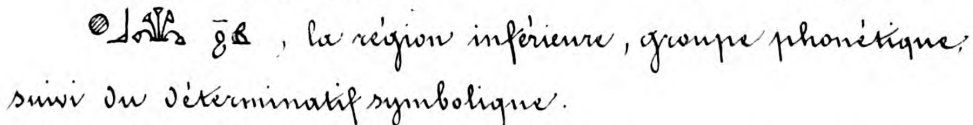 , la région inférieure, groupe phonétique,
suivi du déterminatif symbolique.